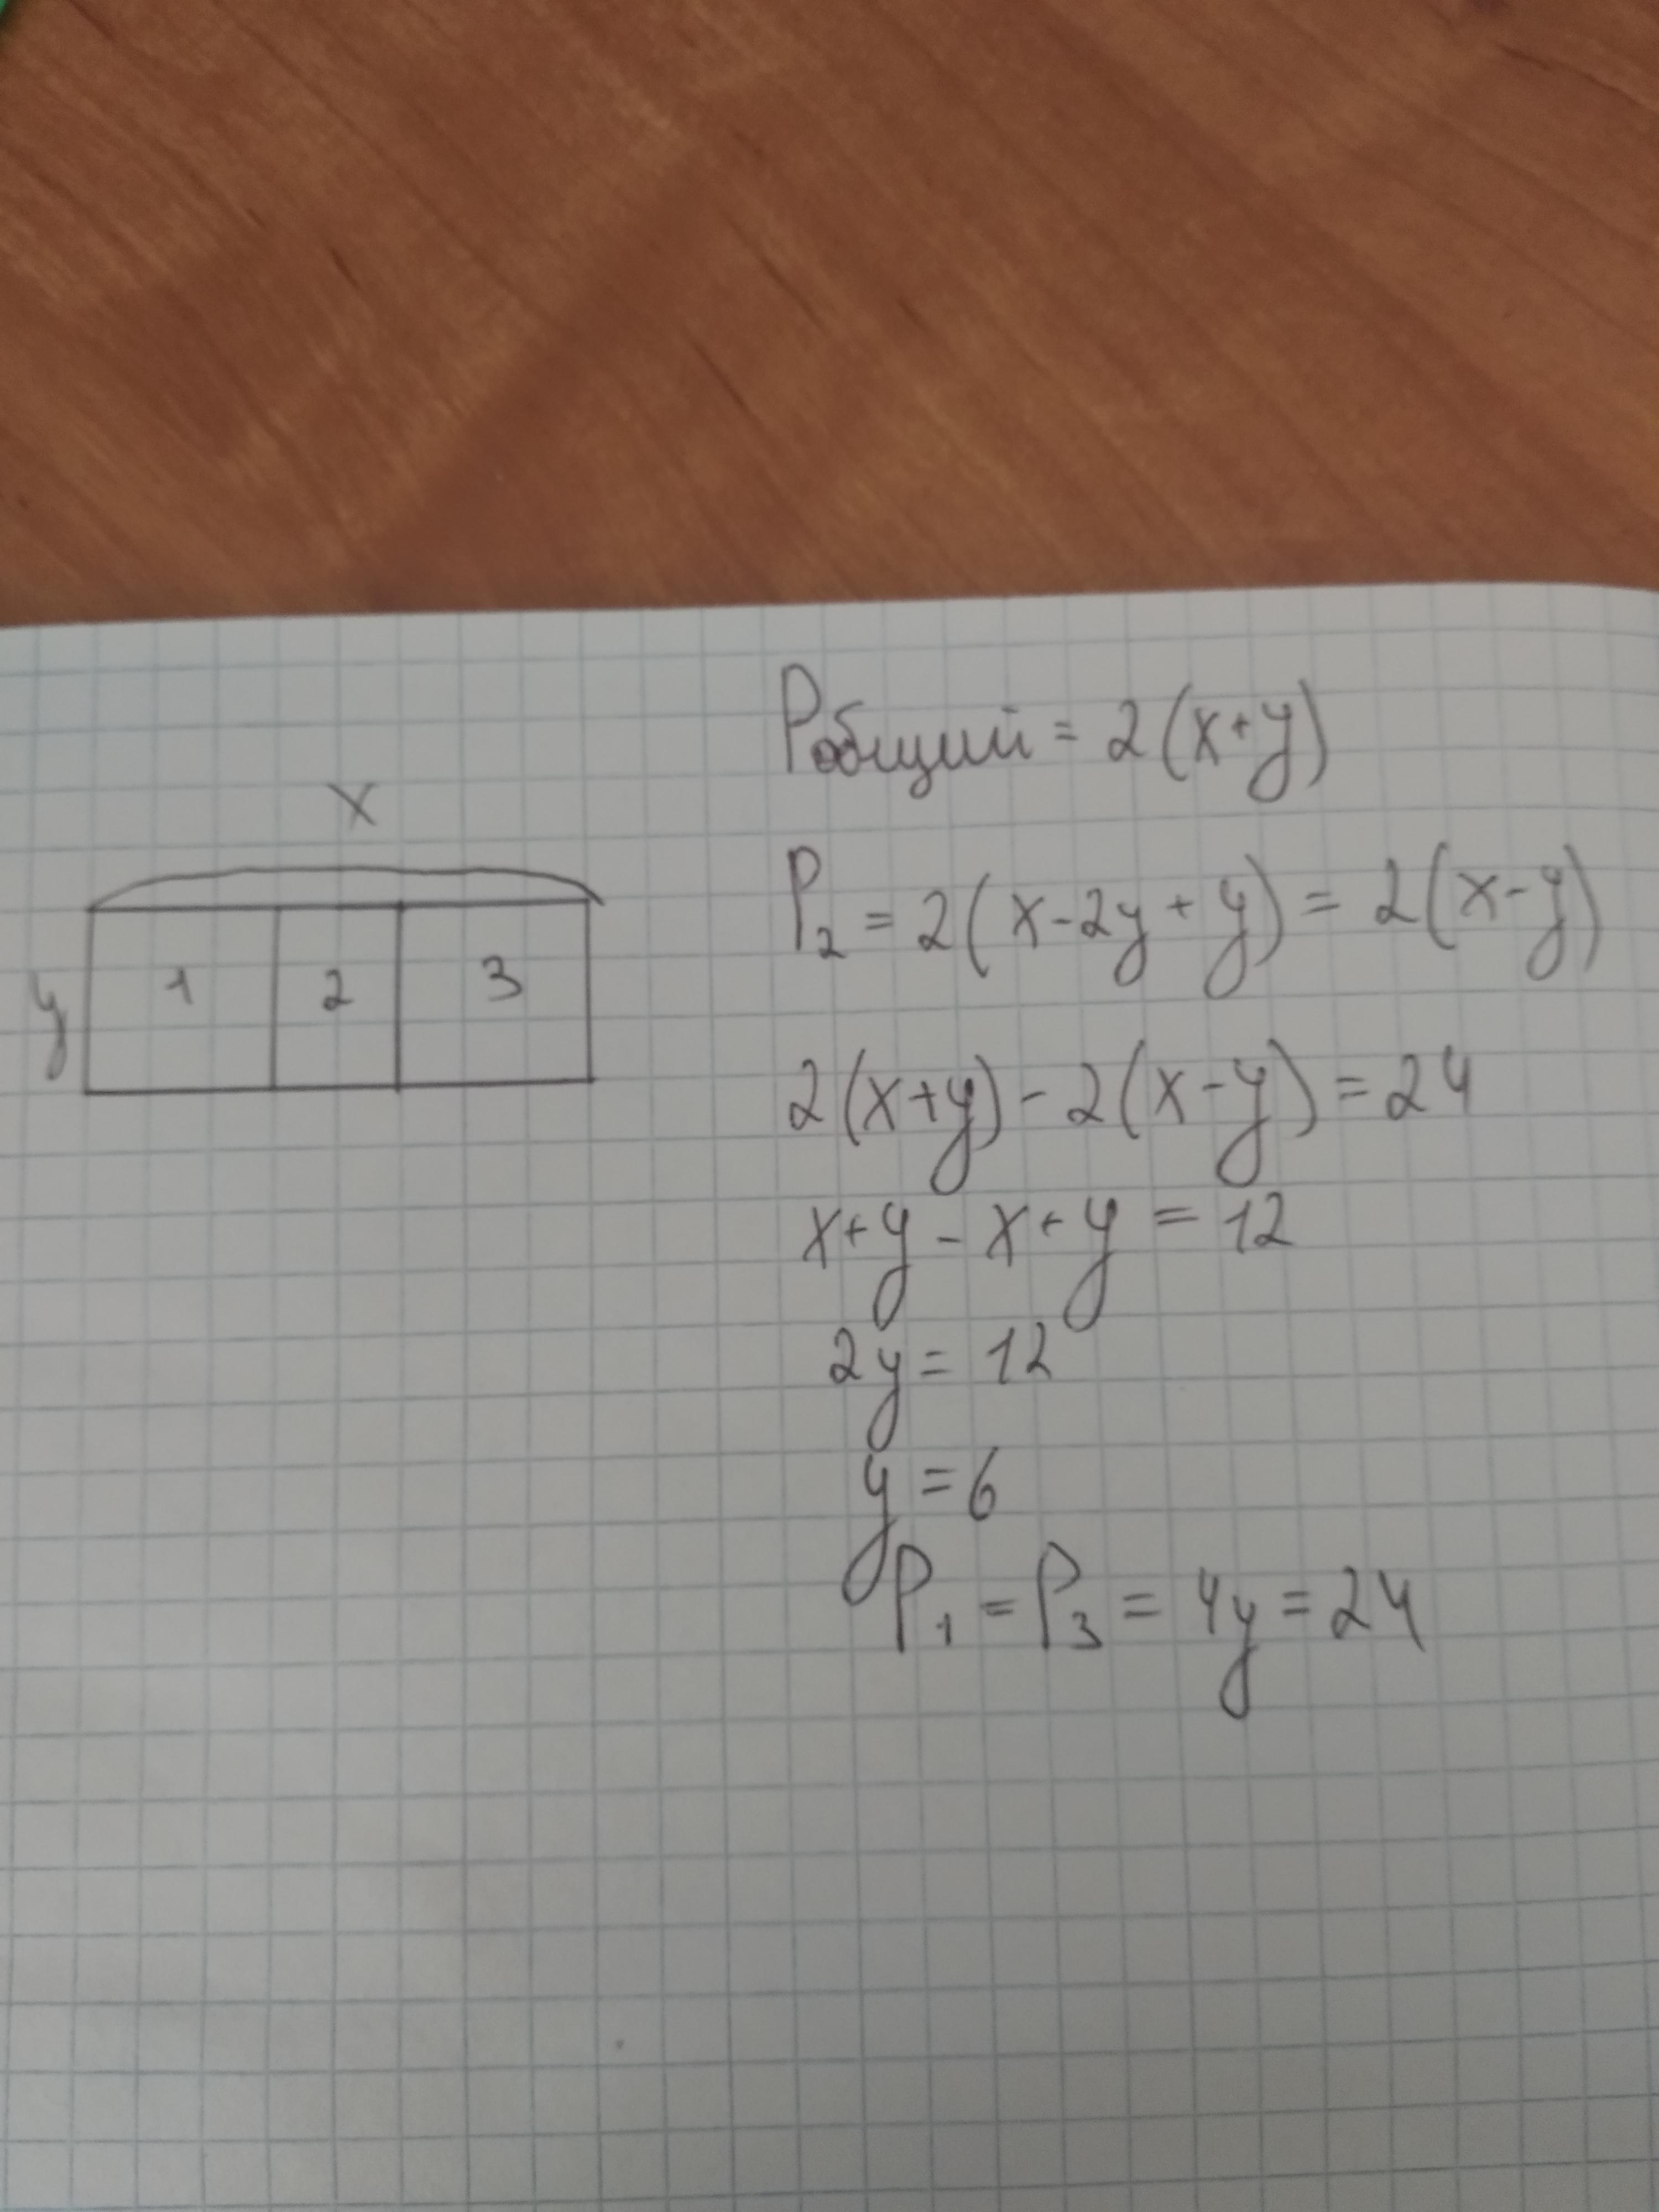 x
y
1 2 3
Pобщий = 2(x+y)
P₂ = 2(x-2y+y) = 2(x-y)
2(x+y) - 2(x-y) = 24
x+y - x+y = 12
2y = 12
y = 6
P₁ = P₃ = 4y = 24